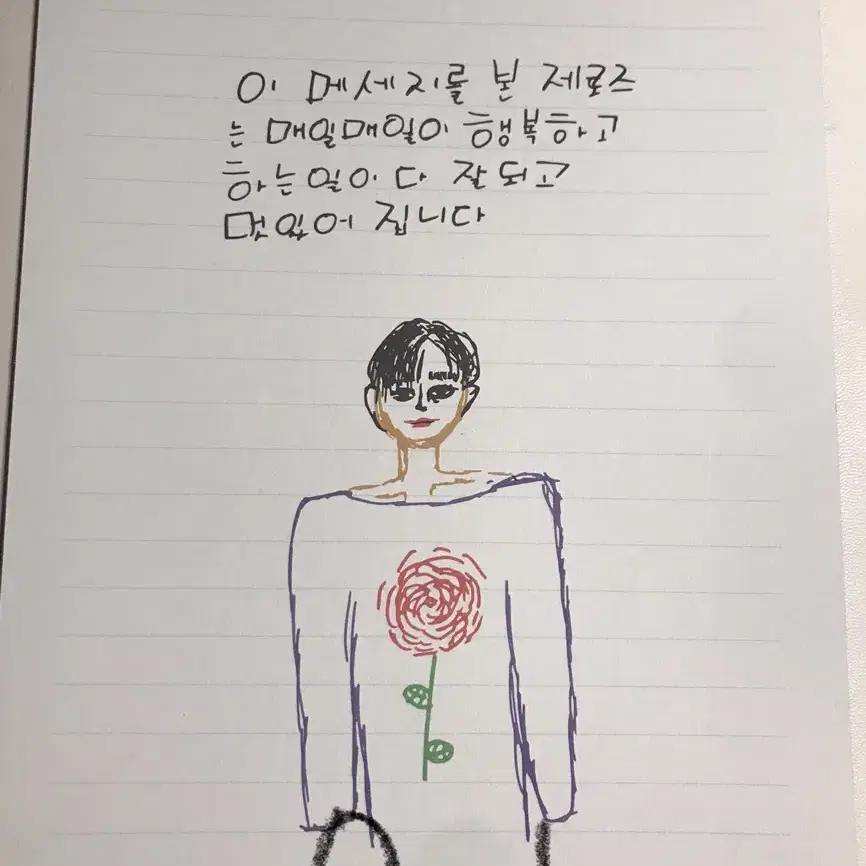 이 메세지를 본 제로즈
는 매일매일이 행복하고
하는일이 다 잘되고
멋있어 집니다